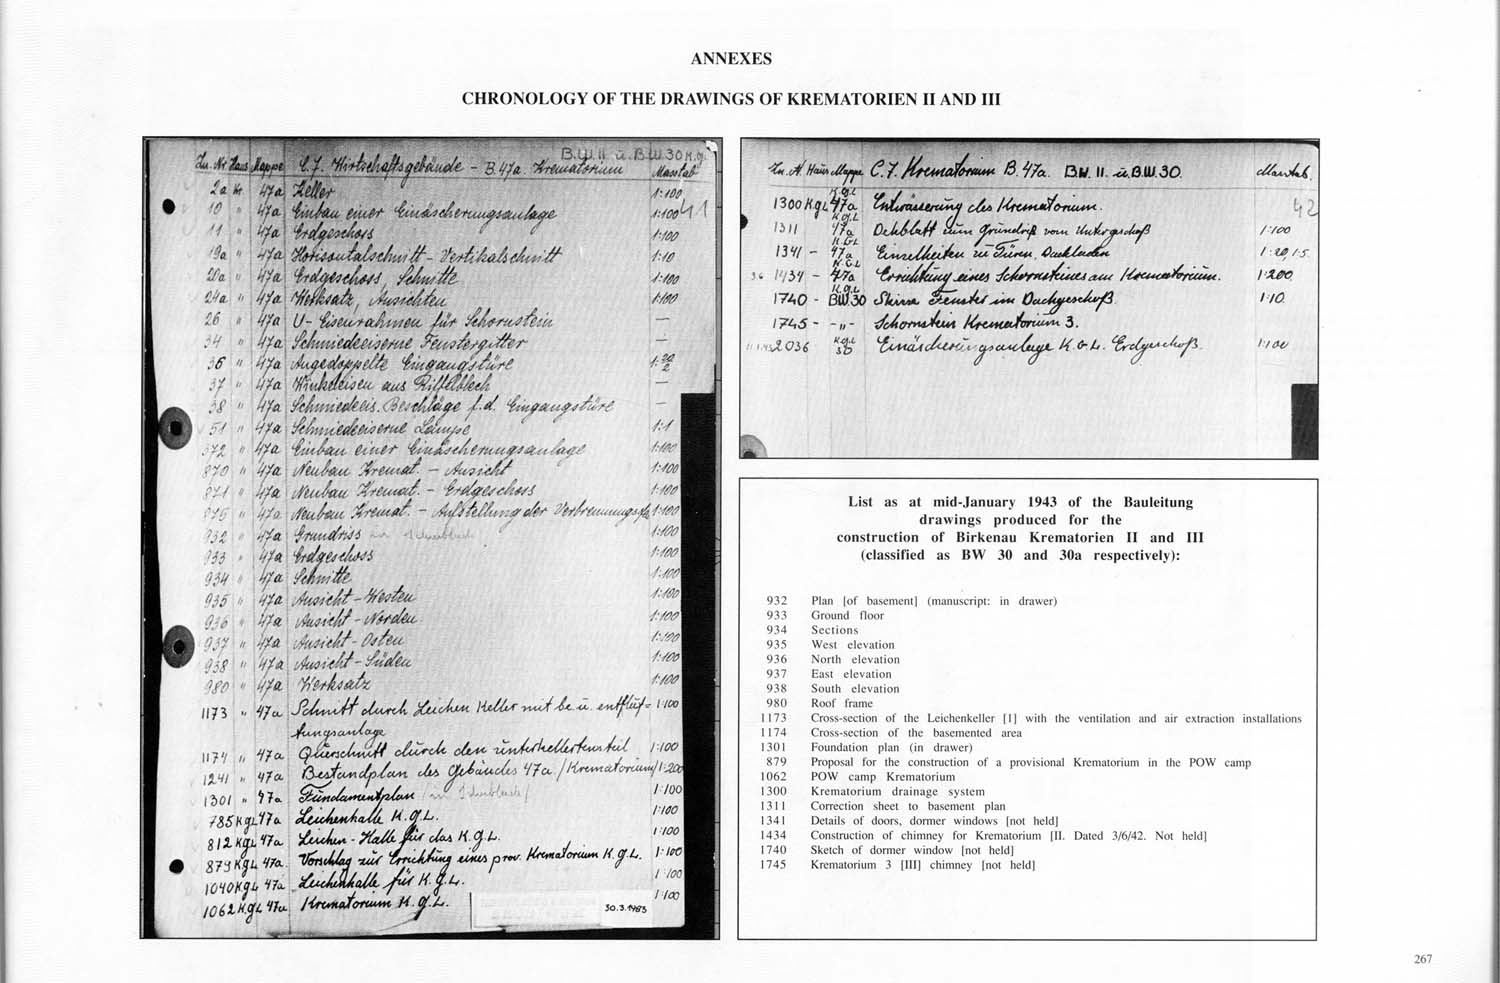 ANNEXES
CHRONOLOGY OF THE DRAWINGS OF KREMATORIEN II AND III
B.W. 11 u. B.W. 30 K.g.
Zn. Nr. Haus Mappe C.7. Wirtschaftsgebäude – B. 47a Krematorium Masstab
2a Kr 47a Keller 1:100
10 " 47a Einbau einer Einäscherungsanlage 1:100 41
11 " 47a Erdgeschoss 1:100
19a " 47a Horisontalschnitt – Vertikalschnitt 1:10
20a " 47a Erdgeschoss, Schnitte 1:100
24a " 47a Werksatz, Ansichten 1:100
26 " 47a U-Eisenrahmen für Schornstein —
34 " 47a Schmiedeeiserne Fenstergitter —
36 " 47a Aufgedoppelte Eingangstüre
37 " 47a Winkeleisen aus Riffelblech —
38 " 47a Schmiedeeis. Beschläge f.d. Eingangstüre —
51 " 47a Schmiedeeiserne Lampe 1:1
572 " 47a Einbau einer Einäscherungsanlage 1:100
870 " 47a Neubau Kremat. – Ansicht 1:100
871 " 47a Neubau Kremat. – Erdgeschoss 1:100
" 47a Neubau Kremat. – Aufstellung der 1:100
932 " 47a Grundriss 1:100
933 " 47a Erdgeschoss 1:100
934 " 47a Schnitte 1:100
935 " 47a Ansicht – Westen 1:100
936 " 47a Ansicht – Norden 1:100
937 " 47a Ansicht – Osten 1:100
938 " 47a Ansicht – Süden 1:100
980 " 47a Werksatz 1:100
1173 " 47a Schnitt durch Leichen Keller mit be. u. entlüf= 1:100
tungsanlage
1174 " 47a Querschnitt durch den unterkellertenteil 1:100
1241 " 47a Bestandplan des Gebäudes 47a. /Krematorium/ 1:200
1301 " 47a Fundamentplan 1:100
785 KgL 47a Leichenhalle K.g.L. 1:100
812 KgL 47a Leichen-Halle für das K.g.L. 1:100
879 KgL 47a. Vorschlag zur Errichtung eines prov. Krematorium K.g.L. 1:100
1040 KgL 47a Leichenhalle für K.g.L. 1:100
1062 K.gL 47a Krematorium K.g.L. 1:100
30.3.1983
Zn. N. Haus Mappe C.7. Krematorium B. 47a. BW. 11. u. B.W. 30. Masstab.
1300 K.g.L K.g.L 47a Entwässerung des Krematorium. 42
1311 K.g.L 47a Dekblatt zum Grundriß vom Untergeschoß 1:100
1341 – K.G.L 47a Einzelheiten zu Türen, Dachladen 1:20, 1:5
1434 – K.G.L 47a Errichtung eines Schornsteines am Krematorium. 1:200.
1740 – K.g.L BW.30 Skizze Fenster im Dachgeschoß. 1:10.
1745 – – " – Schornstein Krematorium 3.
2036 K.g.L 30 Einäscherungsanlage K.G.L. Erdgeschoß. 1:100
List as at mid-January 1943 of the Bauleitung
drawings produced for the
construction of Birkenau Krematorien II and III
(classified as BW 30 and 30a respectively):
932 Plan [of basement] (manuscript: in drawer)
933 Ground floor
934 Sections
935 West elevation
936 North elevation
937 East elevation
938 South elevation
980 Roof frame
1173 Cross-section of the Leichenkeller [1] with the ventilation and air extraction installations
1174 Cross-section of the basemented area
1301 Foundation plan (in drawer)
879 Proposal for the construction of a provisional Krematorium in the POW camp
1062 POW camp Krematorium
1300 Krematorium drainage system
1311 Correction sheet to basement plan
1341 Details of doors, dormer windows [not held]
1434 Construction of chimney for Krematorium [II. Dated 3/6/42. Not held]
1740 Sketch of dormer window [not held]
1745 Krematorium 3 [III] chimney [not held]
267